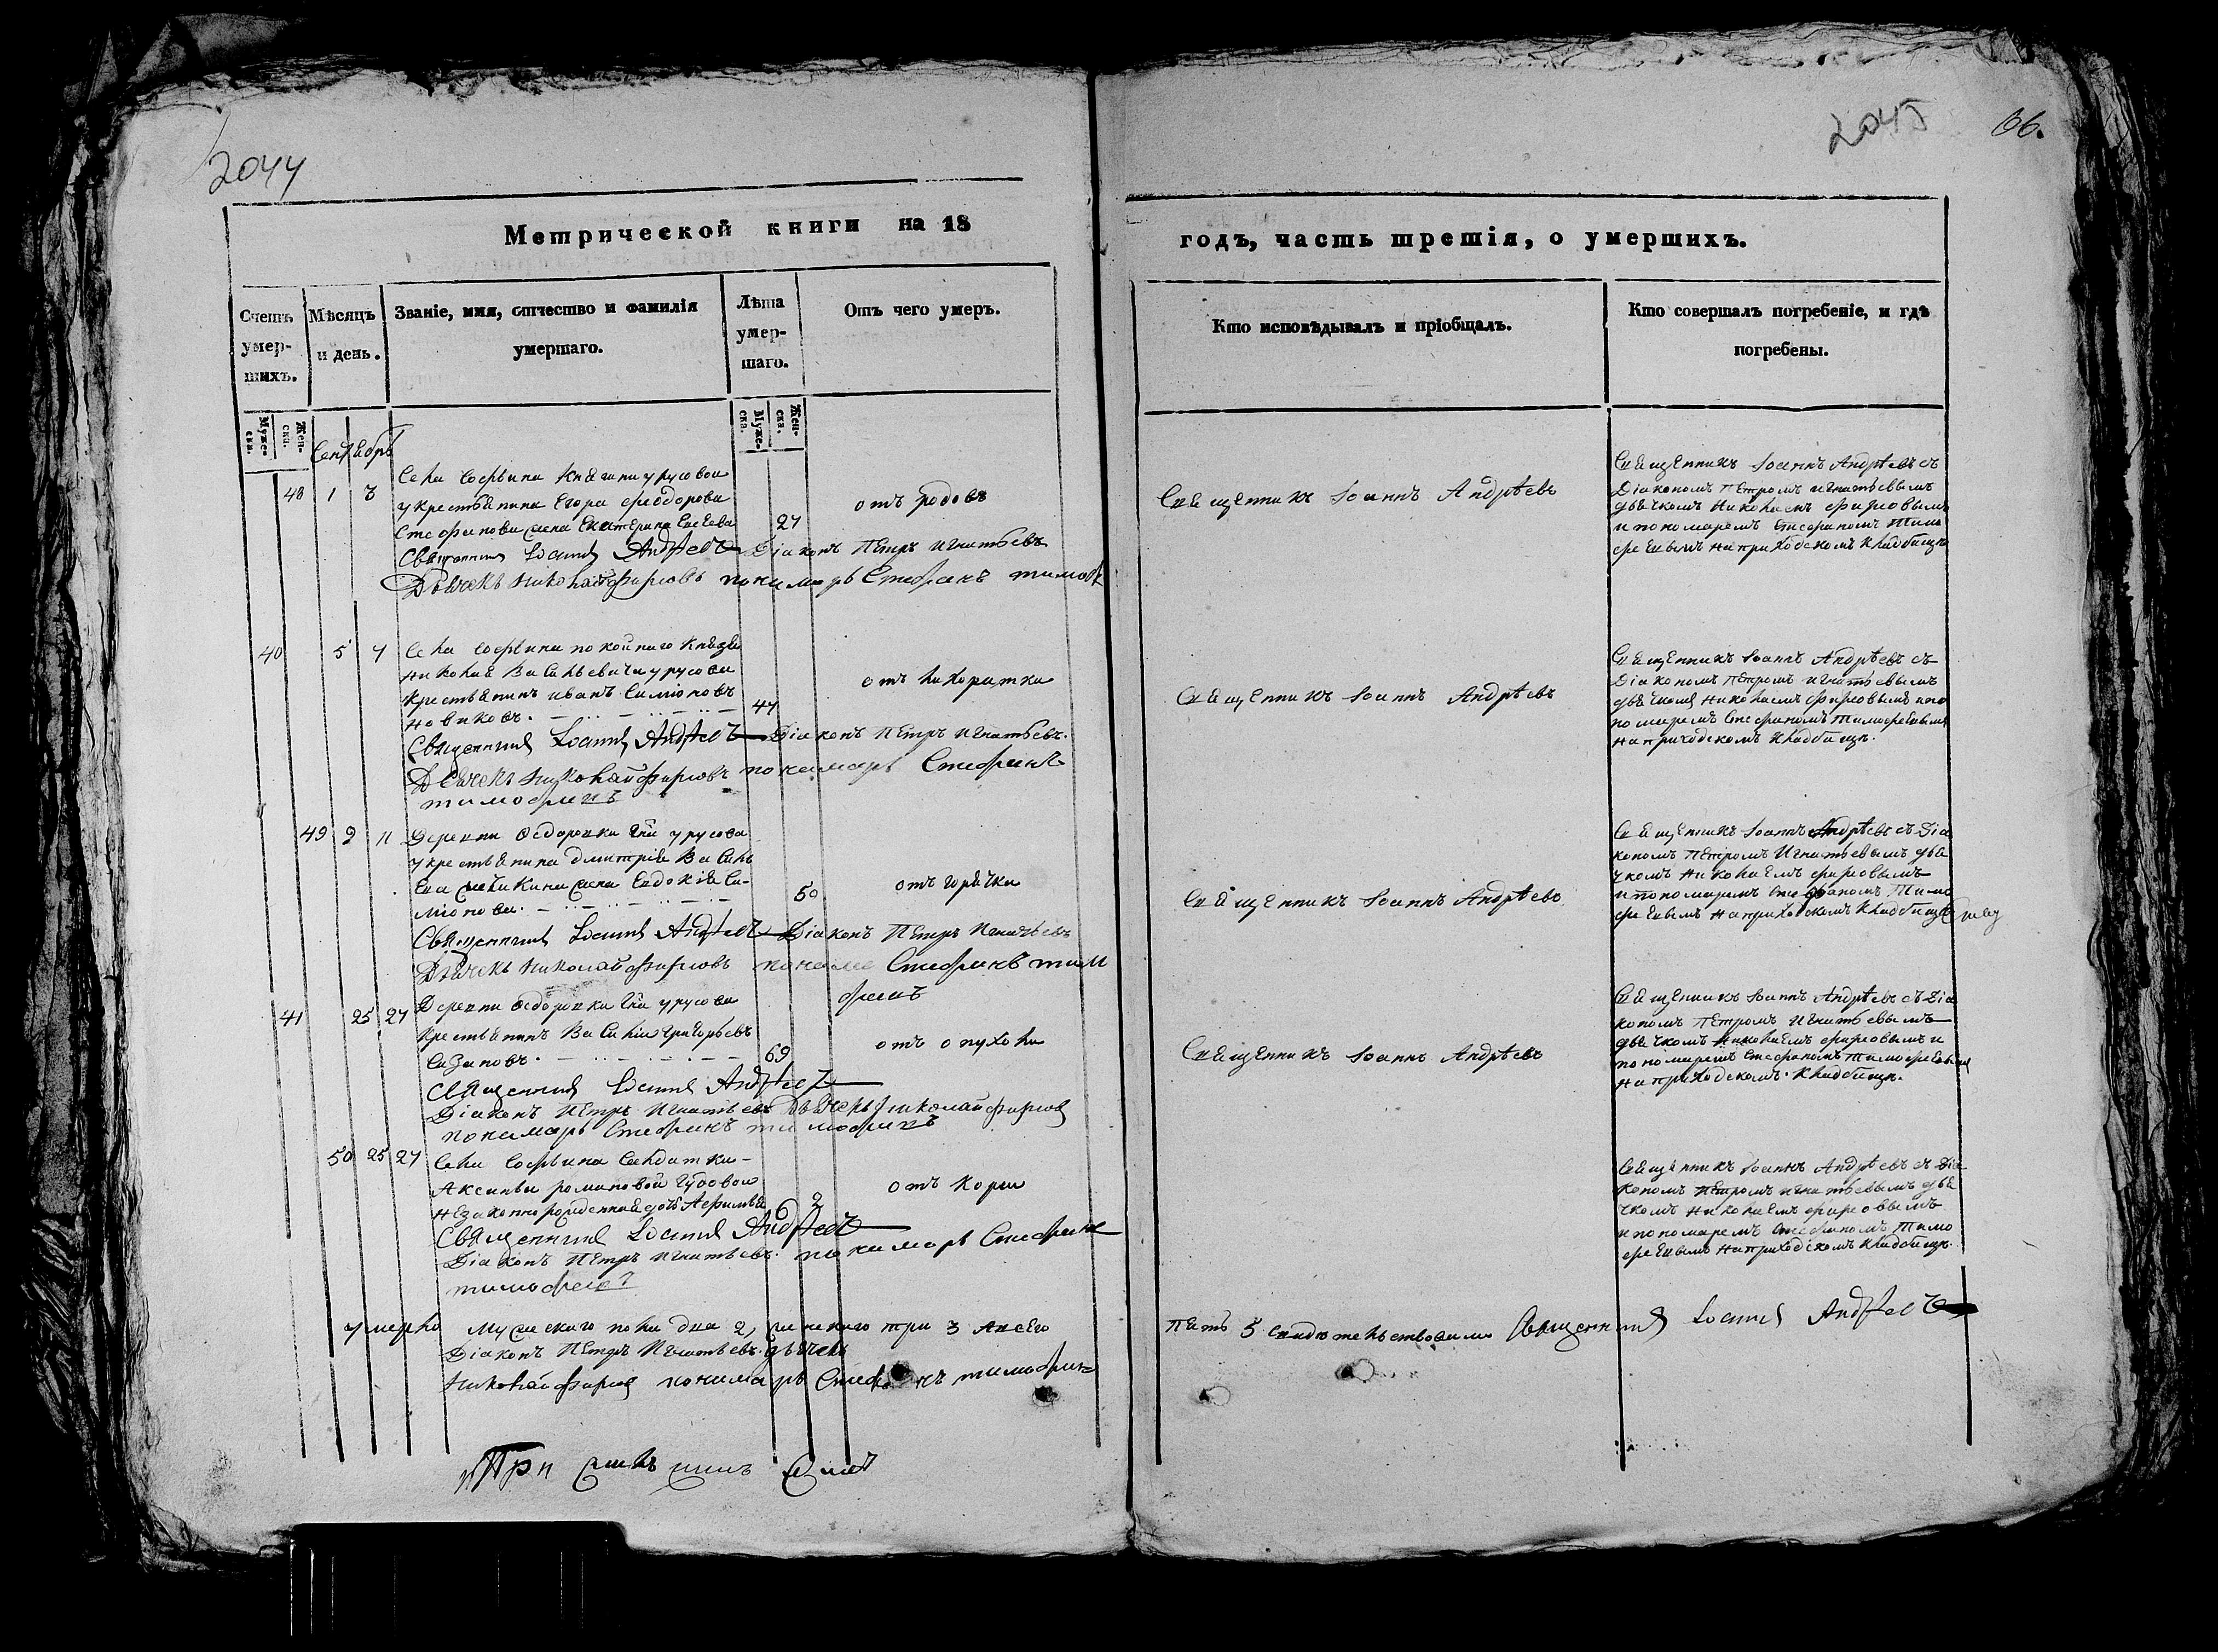 2044
2045
66.
Метрической книги на 18
годъ, часть третія, о умершихъ.
Счетъ умер-шихъ.
Мѣсяцъ и день.
Званіе, имя, отчество и фамилія умершаго.
Лѣта умер-шаго.
Отъ чего умеръ.
Кто исповѣдывалъ и пріобщалъ.
Кто совершалъ погребеніе, и гдѣ погребены.
Муже-ска.
Жен-ска.
Муже-ска.
Жен-ска.
Сентябрь
48 1 3
Села Софьина Княгини урусовои
у крестьянина Егора феодорова
Стефанова жена Екатерина
27
отъ родовъ
Священникъ Іоаннъ Андрѣевъ Діаконъ Петръ Игнатьевъ
Дьячекъ Николай фирсовъ пономарь Стефанъ
Священникъ Іоаннъ Андрѣевъ
Священникъ Іоаннъ Андрѣевъ съ
Діакономъ Петромъ игнатьевымъ
дьячкомъ Николаемъ фирсовымъ
и пономаремъ Стефаномъ Тимо
феевымъ на приходскомъ кладбищѣ
40 5 7
Села Софьина покойнаго Князя
Николая Васильевича урусова
крестьянинъ иванъ Симіоновъ
Новиковъ.
44
отъ лихоратки
Священникъ Іоаннъ Андрѣевъ Діаконъ Петръ Игнатьевъ.
Дьячекъ Николай фирсовъ пономарь Стефанъ
тимофеевъ
Священникъ Іоаннъ Андрѣевъ
Священникъ Іоаннъ Андрѣевъ съ
Діакономъ Петромъ игнатьевымъ
дьячкомъ Николаемъ фирсовымъ и по
номаремъ Стефаномъ Тимофеевымъ
на приходскомъ кладбищѣ.
49 9 11
Деревни Федоровки урусова
у крестьянина Дмитрія Василь
ева жена Евдокія Си-
міонова.
50
отъ горячки
Священникъ Іоаннъ Андрѣевъ Діаконъ Петръ Игнатьевъ
Дьячекъ Николай фирсовъ Стефанъ тимо
феевъ
Священникъ Іоаннъ Андрѣевъ
Священникъ Іоаннъ Андрѣевъ съ Діа
кономъ Петромъ Игнатьевымъ дья
чкомъ Николаемъ фирсовымъ
и пономаремъ Стефаномъ Тимо
феевымъ на приходскомъ кладбищѣ
41 25 27
Деревни Федоровки урусова
крестьянинъ Василій Григорьевъ
Сазановъ.
69
отъ опухоли
Священникъ Іоаннъ Андрѣевъ
Діаконъ Петръ Игнатьевъ Дьячекъ Николай фирсовъ
пономарь Стефанъ тимофеевъ
Священникъ Іоаннъ Андрѣевъ
Священникъ Іоаннъ Андрѣевъ съ Діа
кономъ Петромъ Игнатьевымъ
дьячкомъ Николаемъ фирсовымъ и
пономаремъ Стефаномъ Тимофеевымъ
на приходскомъ кладбищѣ.
50 25 27
Села Софьина Салдатки
Аксиньи романовой
незаконнорожденная дочь
2
отъ кори
Священникъ Іоаннъ Андрѣевъ
Діаконъ Петръ Игнатьевъ. пономарь Стефанъ
тимофеевъ
Священникъ Іоаннъ Андрѣевъ съ Діа
кономъ Петромъ игнатьевымъ дья
чкомъ Николаемъ фирсовымъ
и пономаремъ Стефаномъ Тимо
феевымъ на приходскомъ кладбищѣ.
умерло мужескаго пола два 2, женскаго три 3 а всего
пять 5 свидѣтельствовали Священникъ Іоаннъ Андрѣевъ
Діаконъ Петръ Игнатьевъ дьячекъ
Николай фирсовъ пономарь Стефанъ тимофеевъ